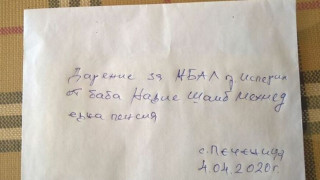 Дарение за МБАЛ гр Исперих
от баба Надие Шаиб Мехмед
една пенсия
с. Печеница
4.04.2020г.